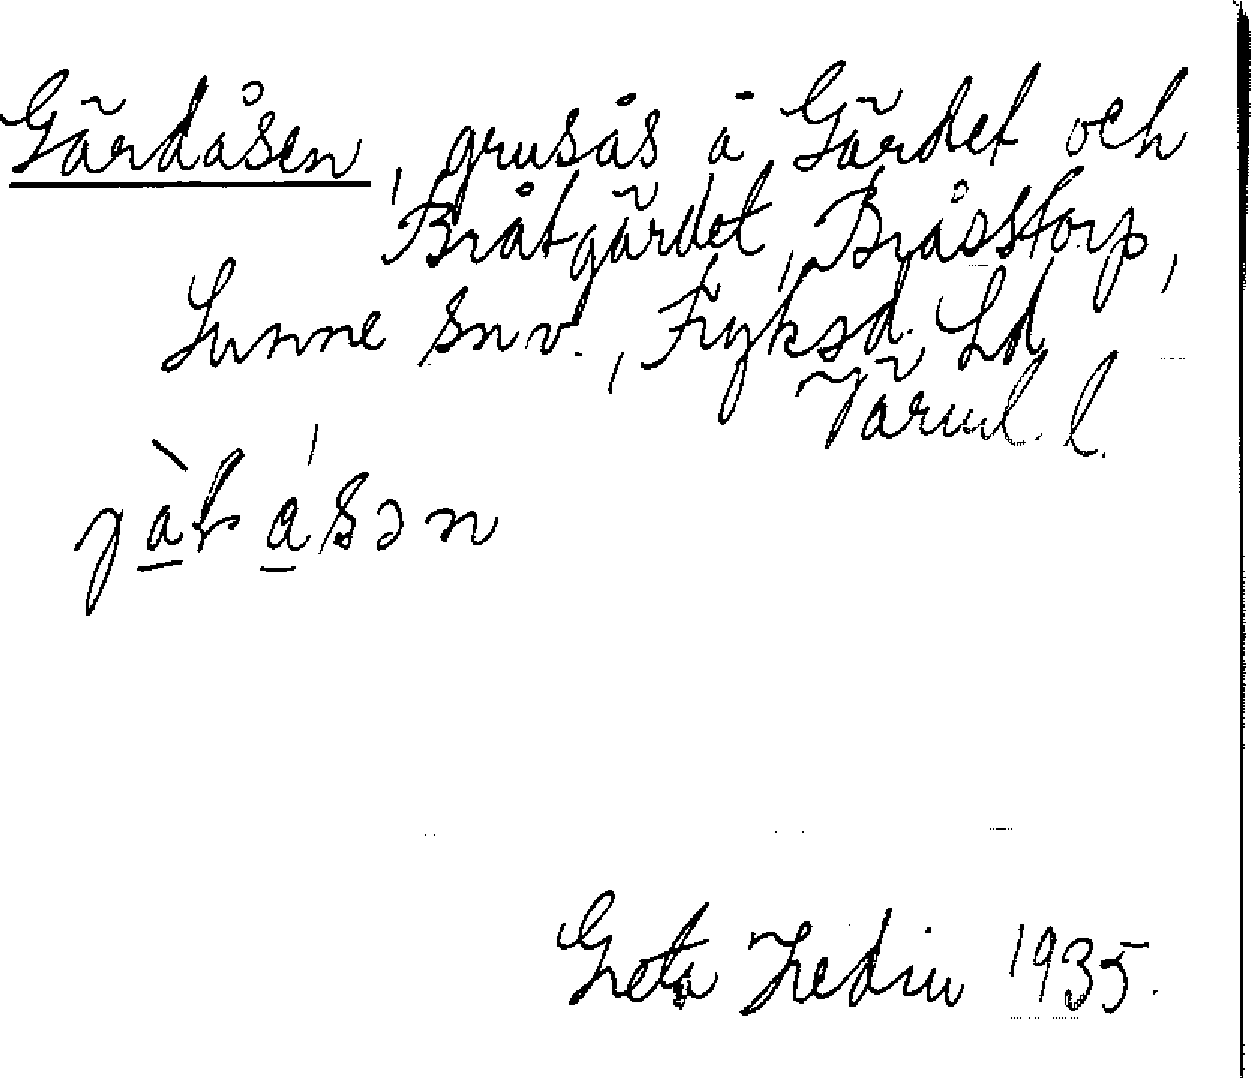 Gärdåsen, grusås å Gärdet och
Bråtgärdet, Bråsstorp,
Sunne snv., Fryksd. hd
Värml. l.
Greta Hedin 1935.